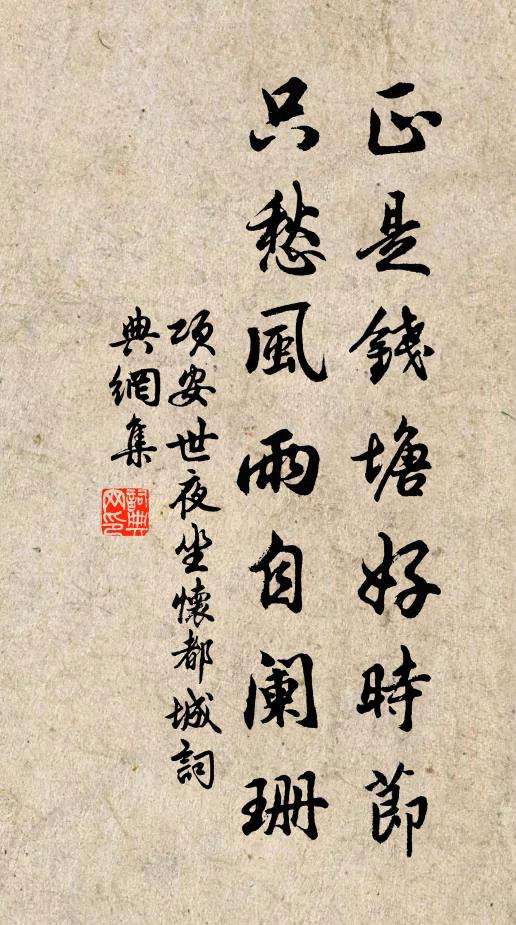 正是錢塘好時節
只愁風雨自阑珊
項安世夜坐懷都城詞
典網集
詞典
网印